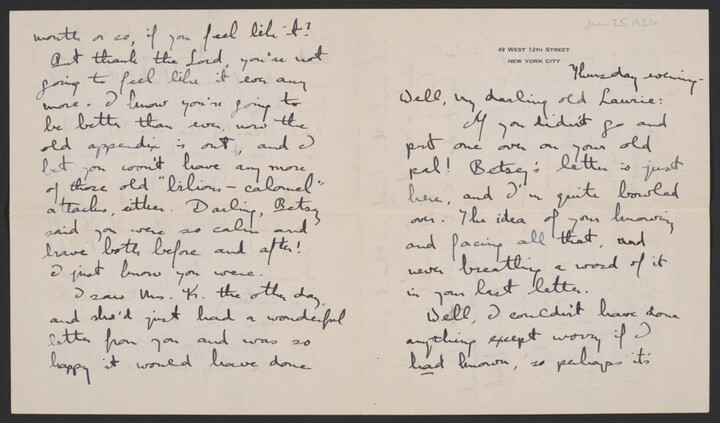 month or so, if you feel like it?
But thank the Lord, you're not
going to feel like it ever any
more. I know you're going to
be better than ever, now the
old appendix is out, and I
bet you won't have any more
of those old "bilious - calomel"
attacks, either. Darling, Betsy
said you were so calm and
brave both before and after!
I just know you were.
I saw Mrs. K. the other day,
and she'd just had a wonderful
letter from you and was so
happy it would have done
June 25,
49 WEST 12TH STREET
NEW YORK CITY
Thursday evening-
Well, my darling old Laurie:
If you didn't go and
put one over on your old
pal! Betsey's letter is just
here, and I'm quite bowled
over. The idea of your knowing
and facing all that, and
never breathing a word of it
in your last letter.
Well, I couldn't have done
anything except worry if I
had known, so perhaps its